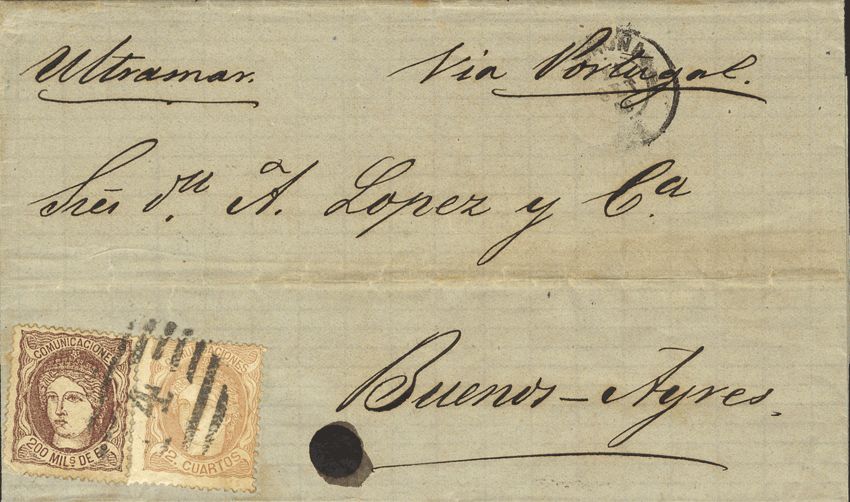 Ultramar. Via Portugal.
Sres dn. A. Lopez y Ca.
Buenos-Ayres.
COMUNICACIONES
200 MILS DE E
12 CUARTOS